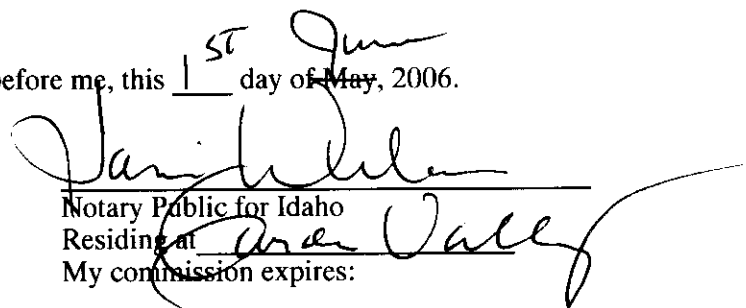 before me, this 1ST day of May, 2006.
June
Notary Public for Idaho
Residing at Garden Valley
My commission expires: